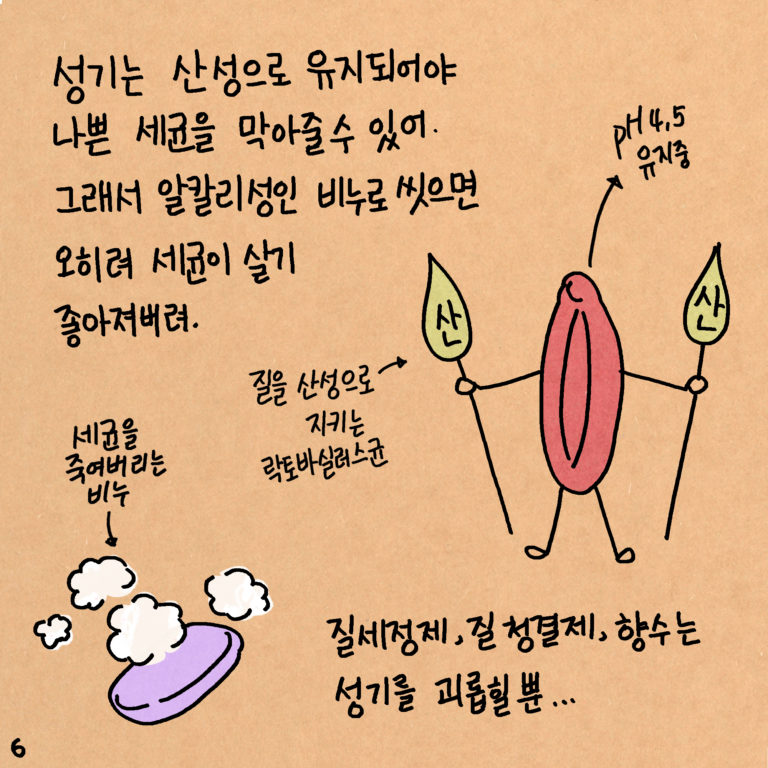 성기는 산성으로 유지되어야
나쁜 세균을 막아줄수 있어.
그래서 알칼리성인 비누로 씻으면
오히려 세균이 살기
좋아져버려.
pH 4,5
유지중
산
산
질을 산성으로
지키는
락토바실러스균
세균을
죽여버리는
비누
질세정제, 질청결제, 향수는
성기를 괴롭힐 뿐...
6